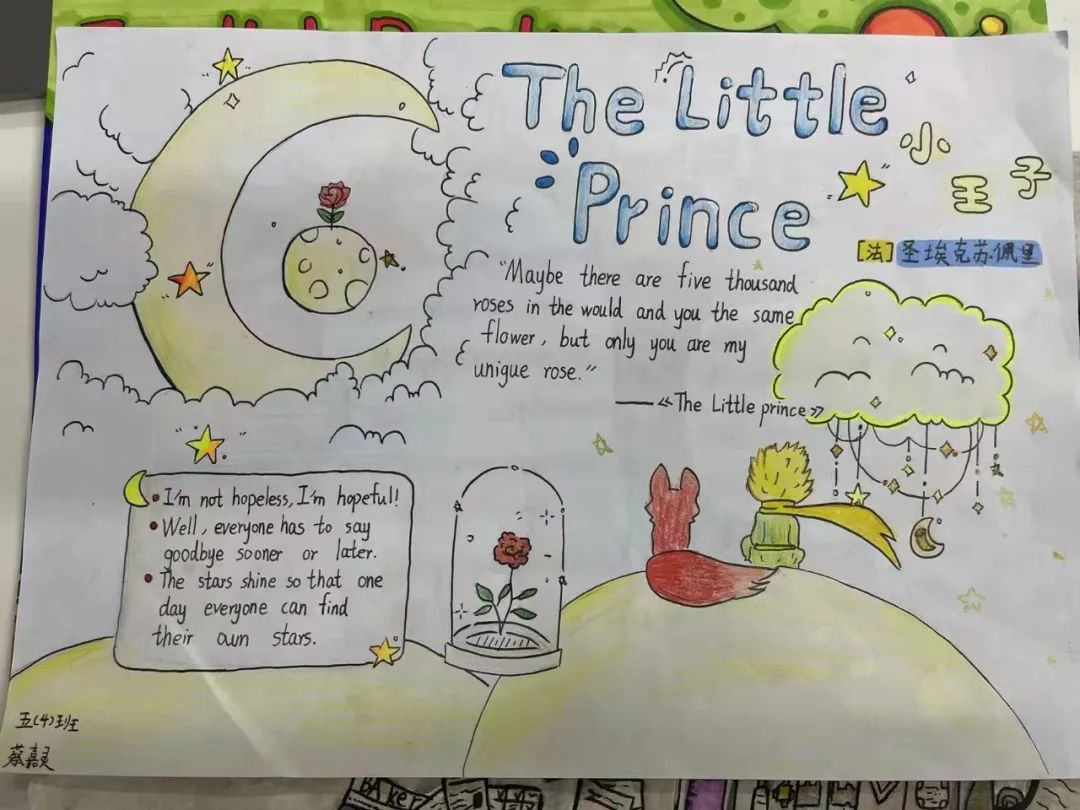 The Little
Prince
小王子
[法] 圣埃克苏·佩里
"Maybe there are five thousand
roses in the would and you the same
flower, but only you are my
unigue rose."
—《The Little prince》
I'm not hopeless, I'm hopeful!
Well, everyone has to say
goodbye sooner or later.
The stars shine so that one
day everyone can find
their own stars.
五(4)班
蔡嘉灵